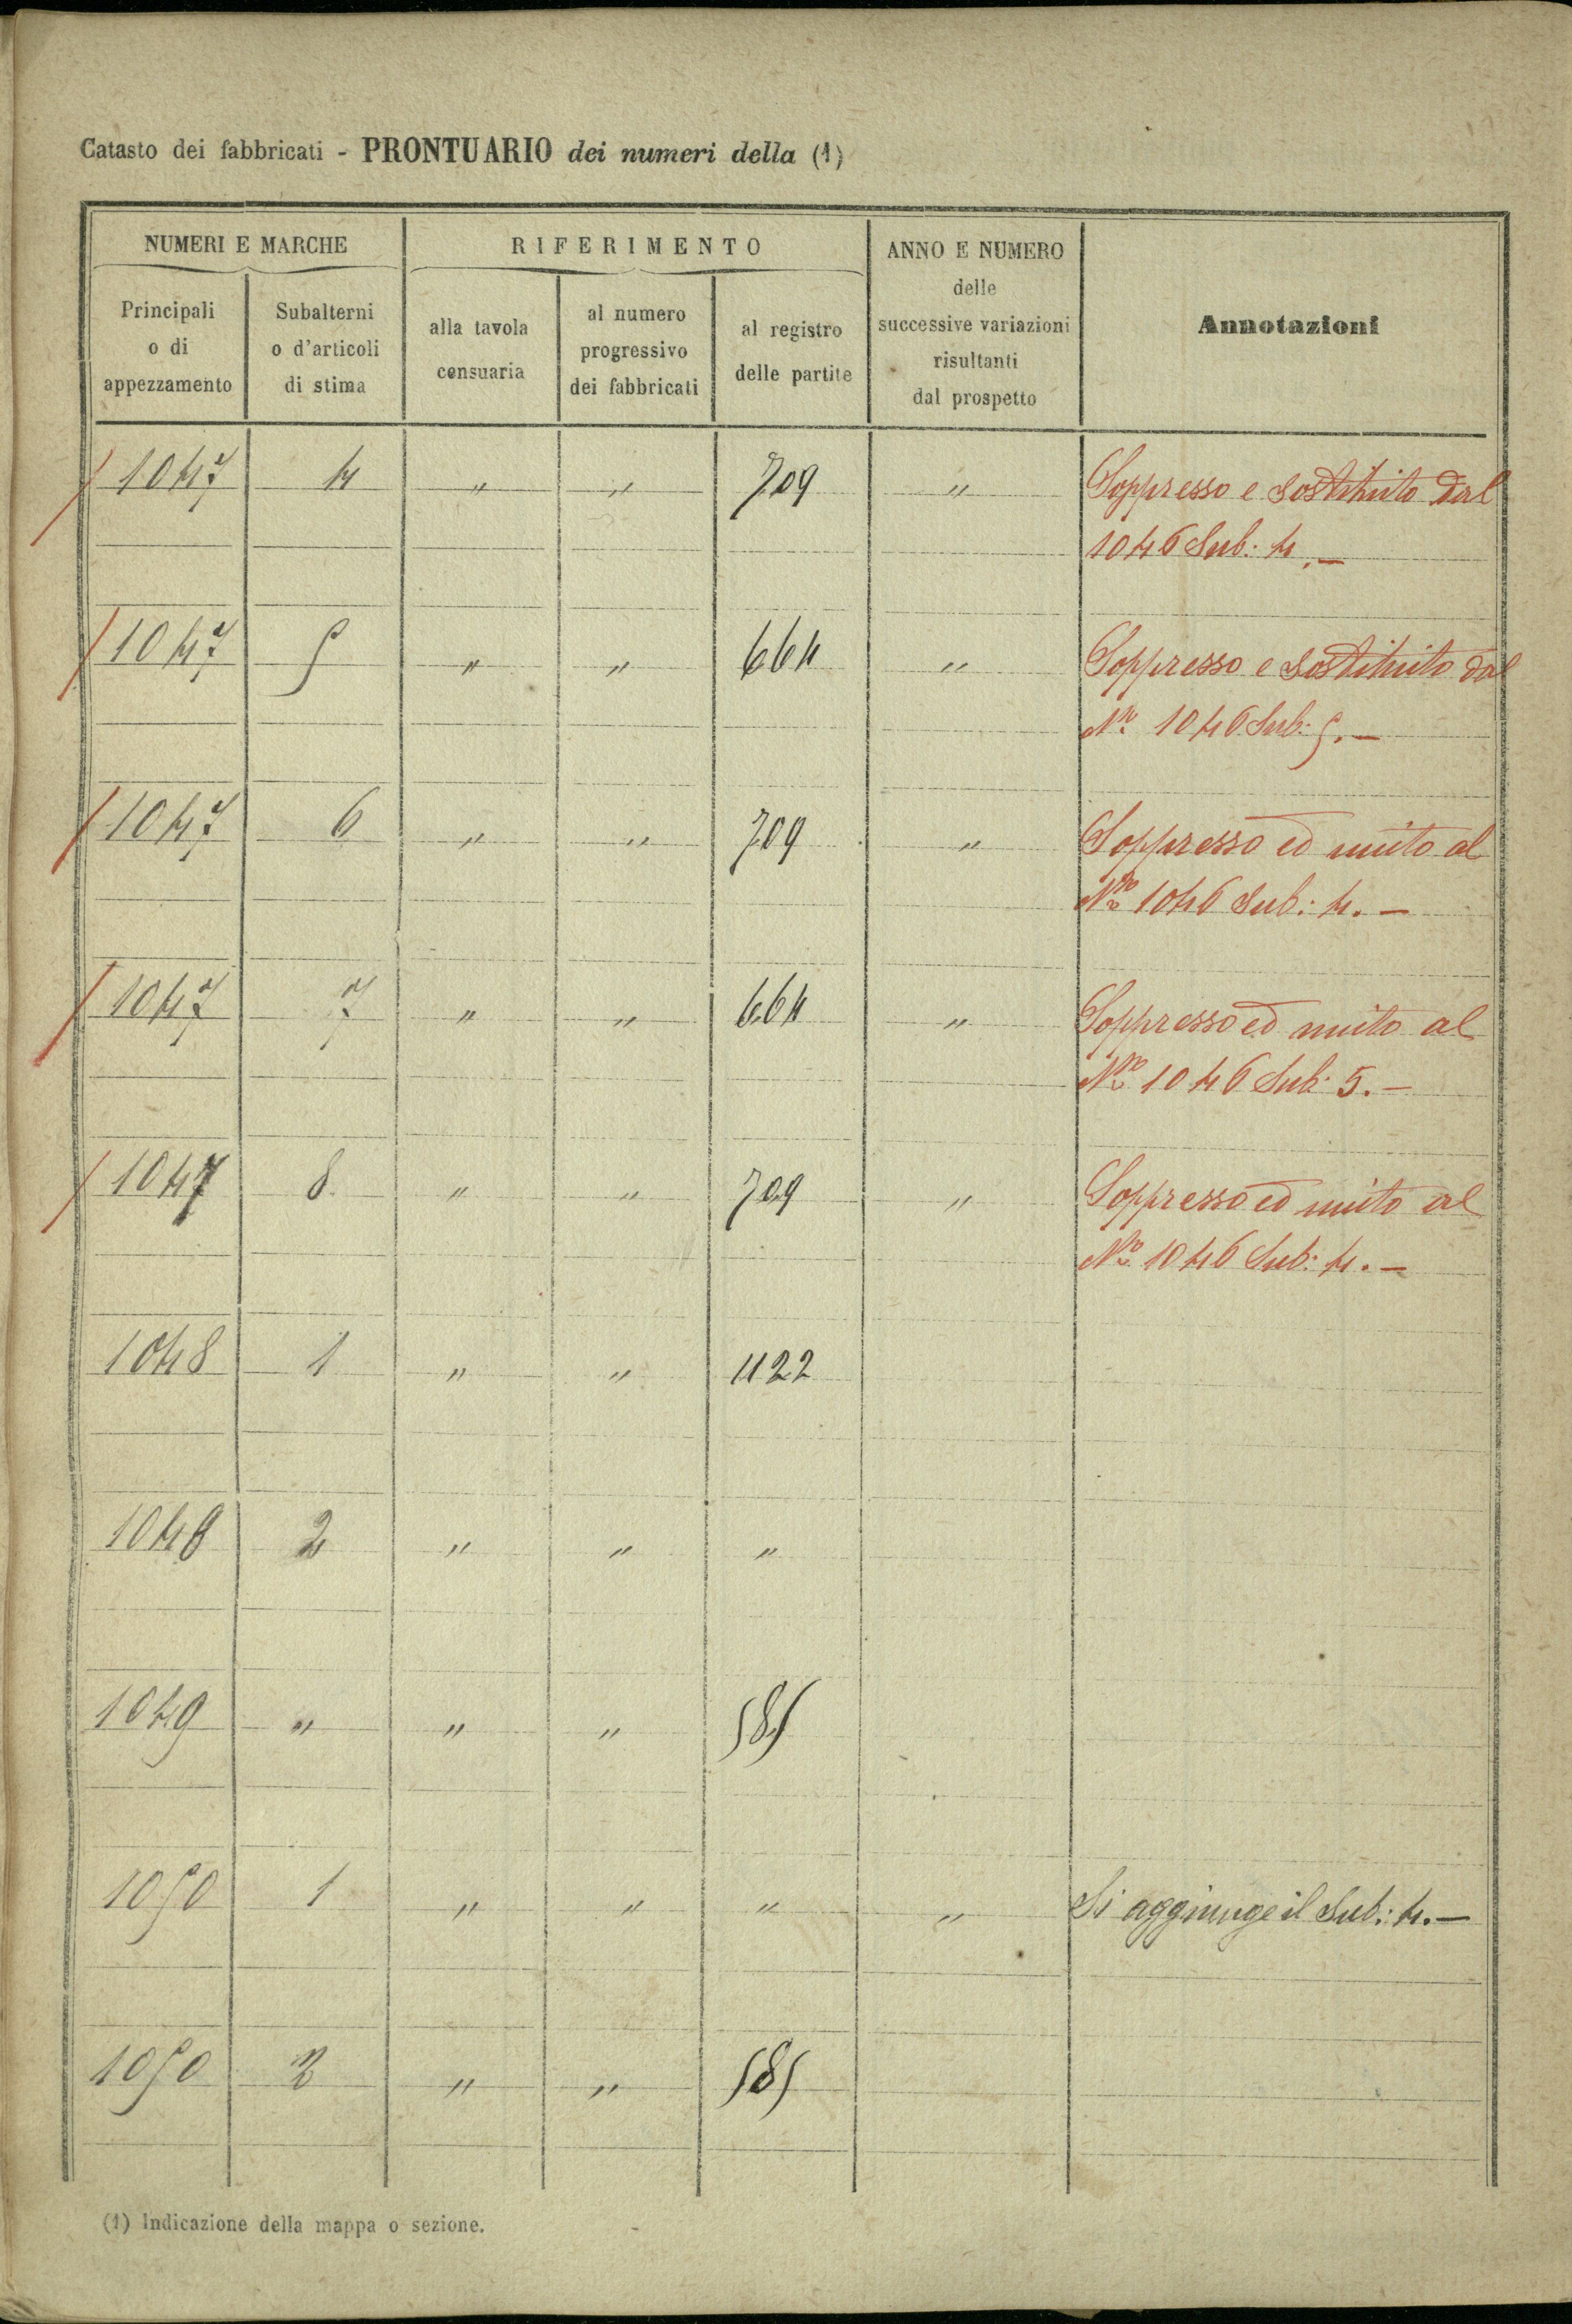 Catasto dei fabbricati - PRONTUARIO dei numeri della (1)
NUMERI E MARCHE
RIFERIMENTO
ANNO E NUMERO
delle
successive variazioni
risultanti
dal prospetto
Annotazioni
Principali
o di
appezzamento
Subalterni
o d'articoli
di stima
alla tavola
censuaria
al numero
progressivo
dei fabbricati
al registro
delle partite
1047 4 " " 709 " Soppresso e sostituito dal
1046 Sub: 4.—
1047 5 " " 664 " Soppresso e sostituito dal
No. 1046 Sub: 5.—
1047 6 " " 709 " Soppresso ed unito al
No. 1046 Sub: 4.—
1047 7 " " 664 " Soppresso ed unito al
No. 1046 Sub: 5.—
1047 8 " " 709 " Soppresso ed unito al
No. 1046 Sub: 4.—
1048 1 " " 1122
1048 2 " " "
1049 " " " 585
1050 1 " " " " Si aggiunge il Sub: 4.—
1050 2 " " 585
(1) Indicazione della mappa o sezione.